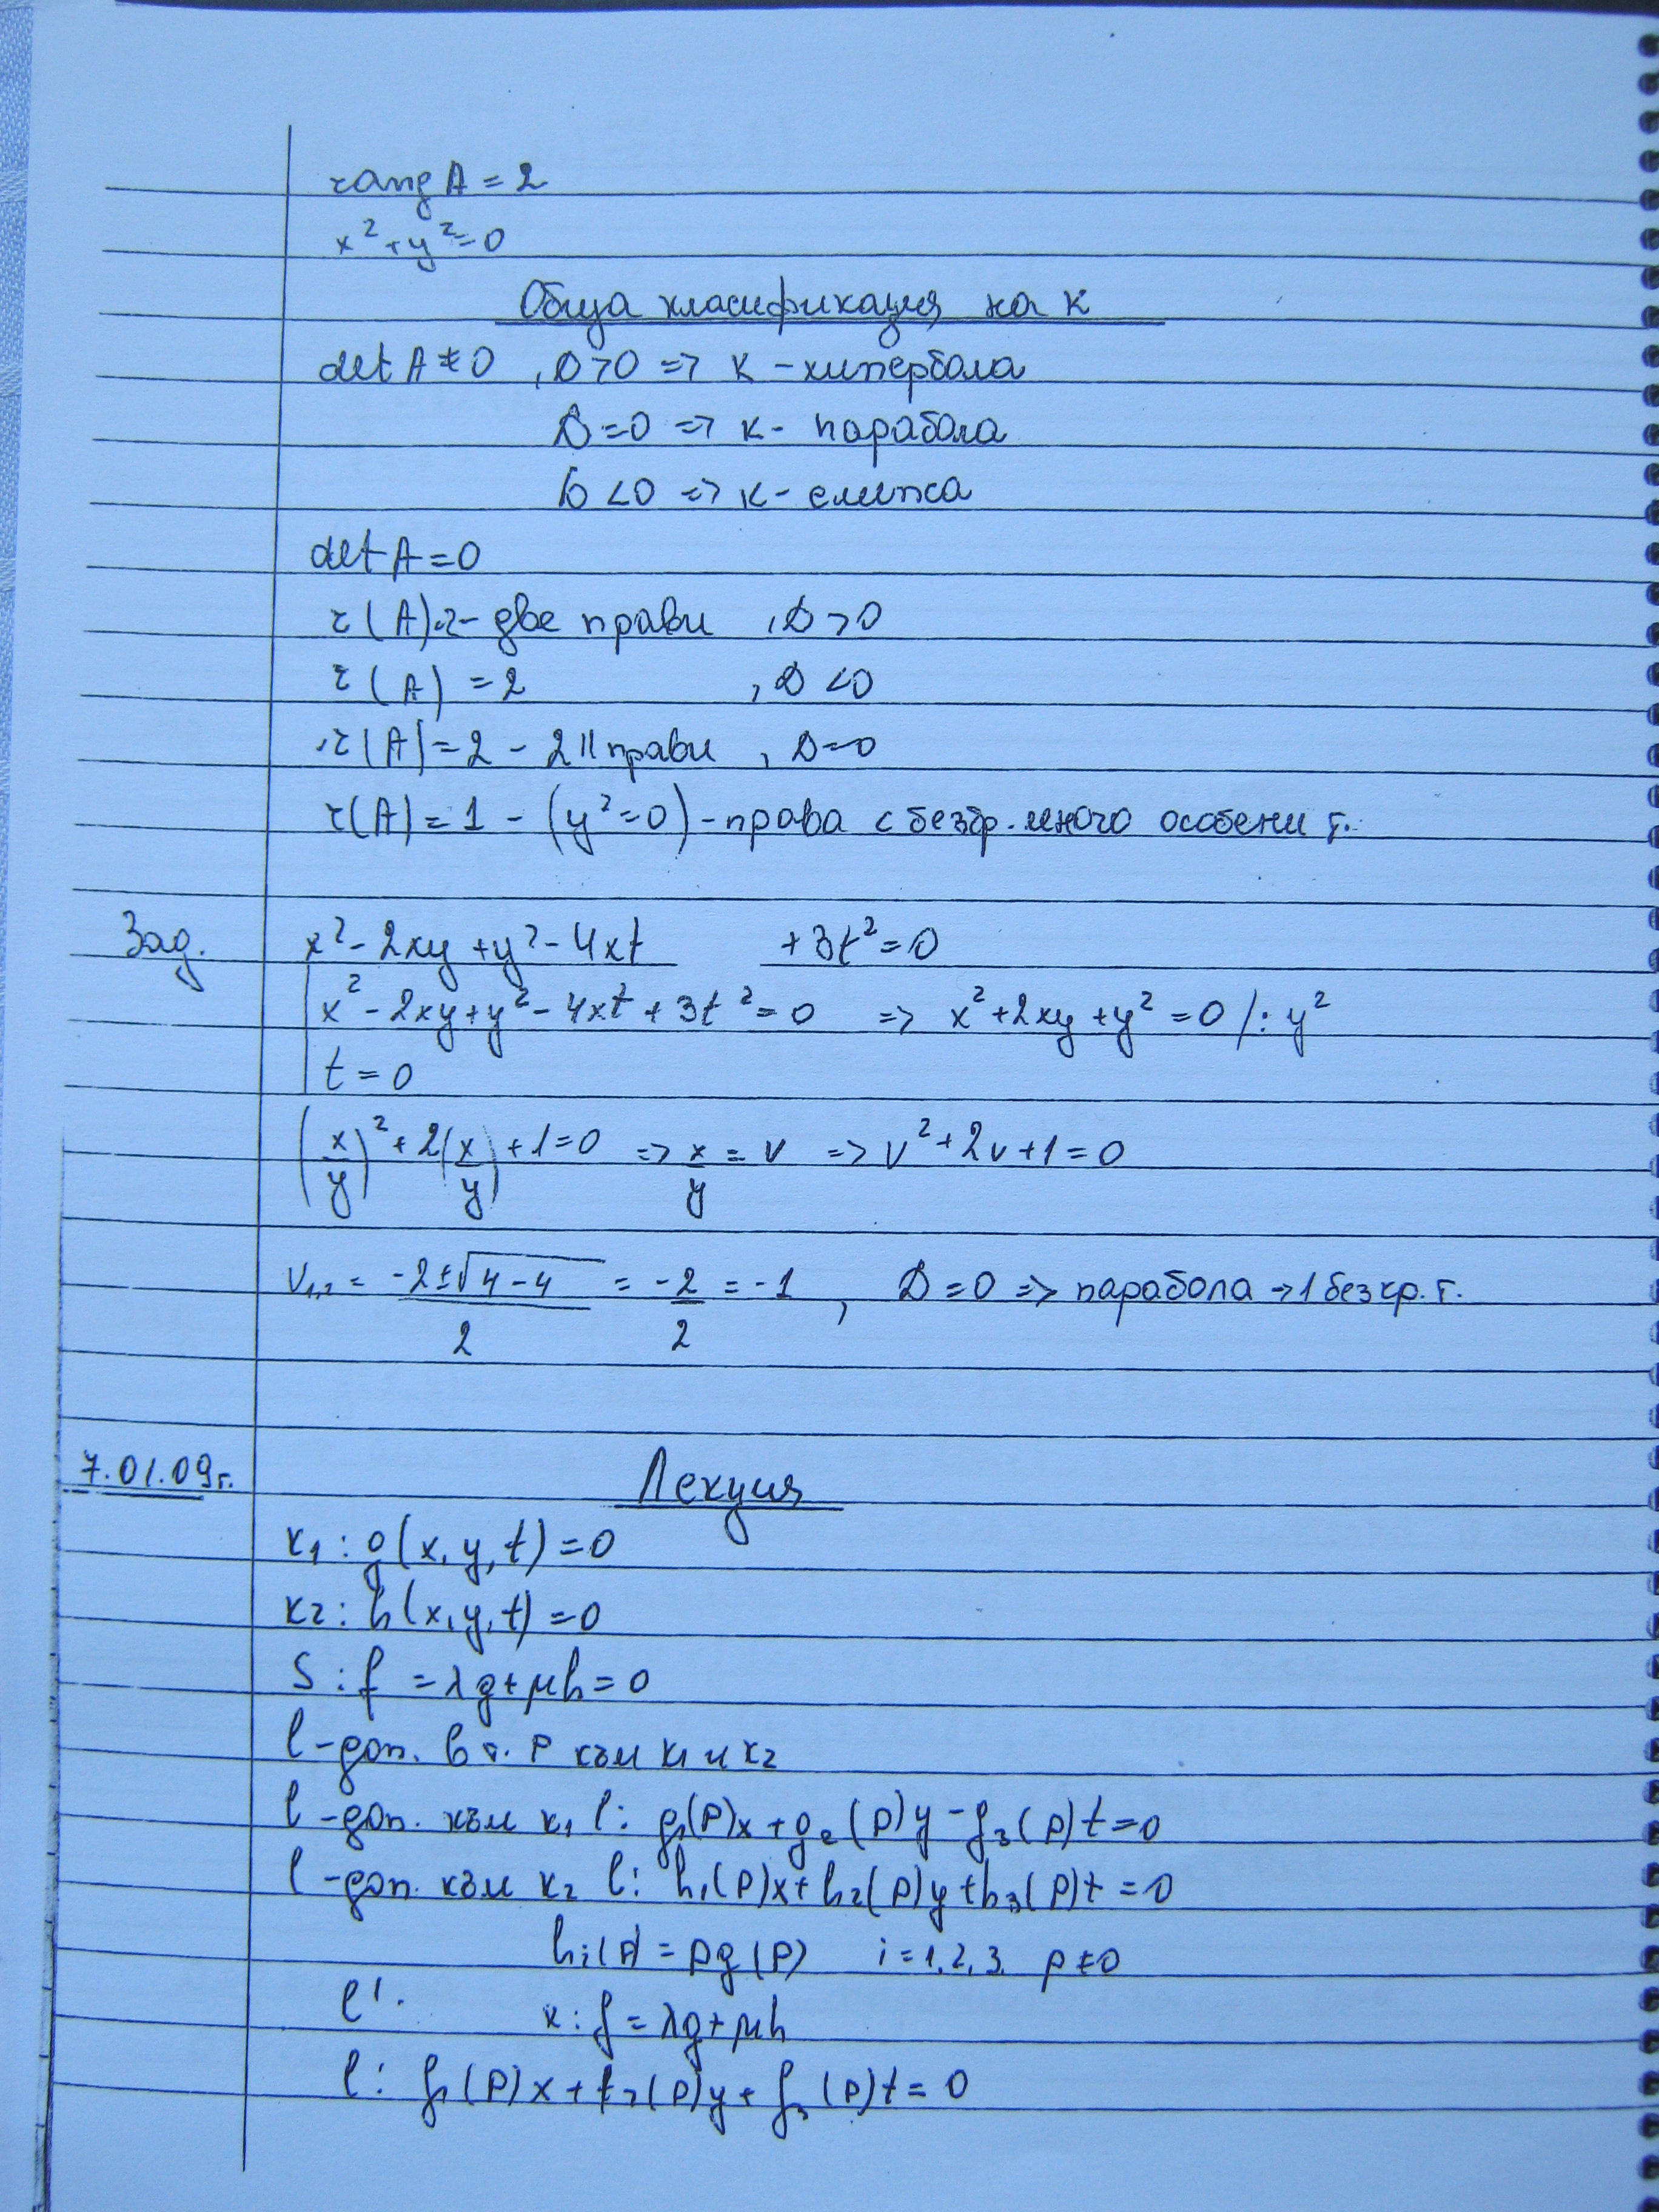 rang A = 2
x² + y² = 0
Обща класификация на к
det A ≠ 0 , D > 0 => к - хипербола
D = 0 => к - парабола
D < 0 => к - елипса
det A = 0
r(A) 2 - две прави , D > 0
r(A) = 2 , D < 0
r(A) = 2 - 2 || прави , D = 0
r(A) = 1 - (y² = 0) - права с безбр. много особени т.
Зад. x² - 2xy + y² - 4xt + 3t² = 0
x² - 2xy + y² - 4xt + 3t² = 0 => x² + 2xy + y² = 0 /: y²
t = 0
(x/y)² + 2(x/y) + 1 = 0 => x/y = v => v² + 2v + 1 = 0
v₁,₂ = (-2 ± √4 - 4)/2 = -2/2 = -1 , D = 0 => парабола → 1 безкр. т.
7.01.09г. Лекция
к₁ : g(x, y, t) = 0
к₂ : h(x, y, t) = 0
S : f = λg + μh = 0
l - доп. в т. P към к₁ и к₂
l - доп. към к₁ l: g₁(P)x + g₂(P)y - g₃(P)t = 0
l - доп. към к₂ l: h₁(P)x + h₂(P)y + h₃(P)t = 0
hᵢ(P) = ρg(P) i = 1, 2, 3, ρ ≠ 0
l'. к : f = λg + μh
l: f₁(P)x + f₂(P)y + f₃(P)t = 0